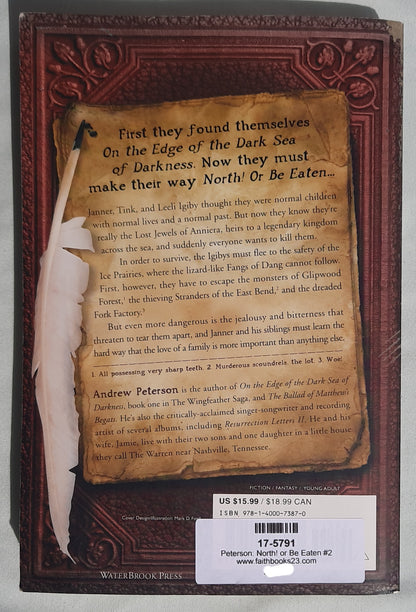 First they found themselves
On the Edge of the Dark Sea
of Darkness. Now they must
make their way North! Or Be Eaten...
Janner, Tink, and Leeli Igiby thought they were normal children
with normal lives and a normal past. But now they know they're
really the Lost Jewels of Anniera, heirs to a legendary kingdom
across the sea, and suddenly everyone wants to kill them.
In order to survive, the Igibys must flee to the safety of the
Ice Prairies, where the lizard-like Fangs of Dang cannot follow.
First, however, they have to escape the monsters of Glipwood
Forest,¹ the thieving Stranders of the East Bend,² and the dreaded
Fork Factory.³
But even more dangerous is the jealousy and bitterness that
threaten to tear them apart, and Janner and his siblings must learn the
hard way that the love of a family is more important than anything else.
1. All possessing very sharp teeth. 2. Murderous scoundrels, the lot. 3. Woe!
Andrew Peterson is the author of On the Edge of the Dark Sea of
Darkness, book one in The Wingfeather Saga, and The Ballad of Matthew's
Begats. He's also the critically-acclaimed singer-songwriter and recording
artist of several albums, including Resurrection Letters II. He and his
wife, Jamie, live with their two sons and one daughter in a little house
they call The Warren near Nashville, Tennessee.
FICTION / FANTASY / YOUNG ADULT
US $15.99 / $18.99 CAN
ISBN 978-1-4000-7387-0
17-5791
Peterson: North! or Be Eaten #2
www.faithbooks23.com
Cover Design/Illustration: Mark D.
WATERBROOK PRESS